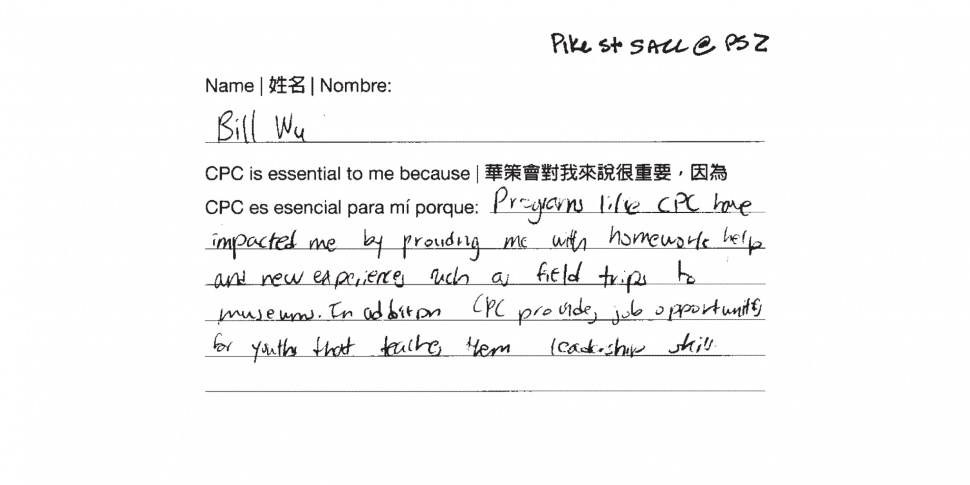 Pike St SACC @ PS 2
Name | 姓名 | Nombre:
Bill Wu
CPC is essential to me because | 華策會對我來說很重要，因為
CPC es esencial para mí porque: Programs like CPC have
impacted me by providing me with homework help
and new experiences such as field trips to
museums. In addition CPC provides job opportunities
for youths that teaches them leadership skill.